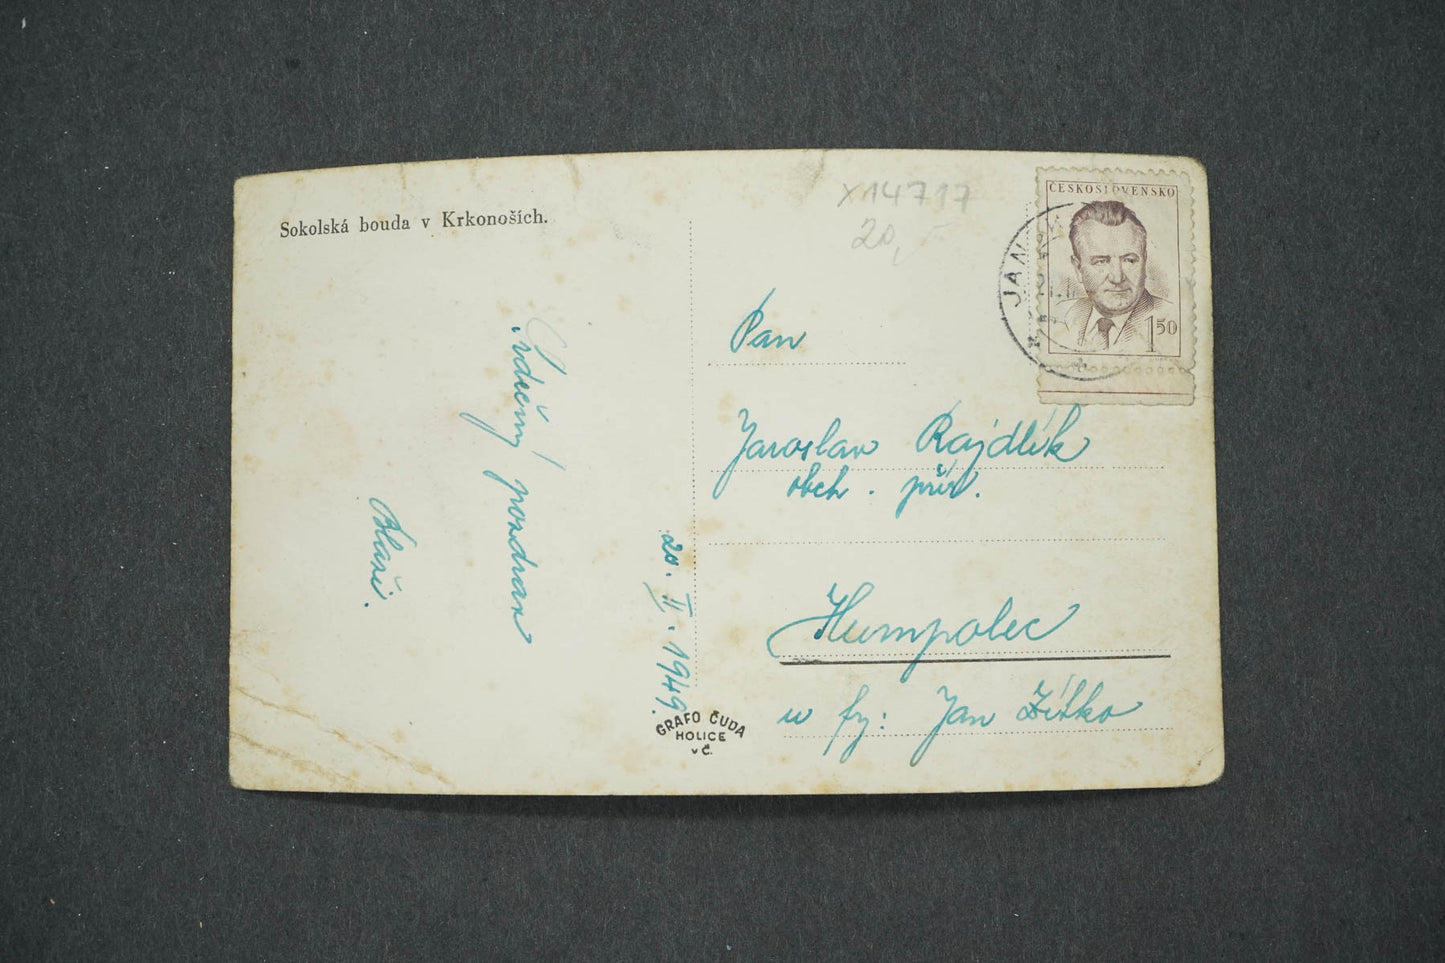 Sokolská bouda v Krkonoších.
x14717
20,-
ČESKOSLOVENSKO
1 50
JAN
Srdečný pozdrav
20. II. 1949.
Pan
Jaroslav Rajdlík
obch. přír.
Humpolec
u fy: Jan Žitko
GRAFO ČUDA
HOLICE
v Č.